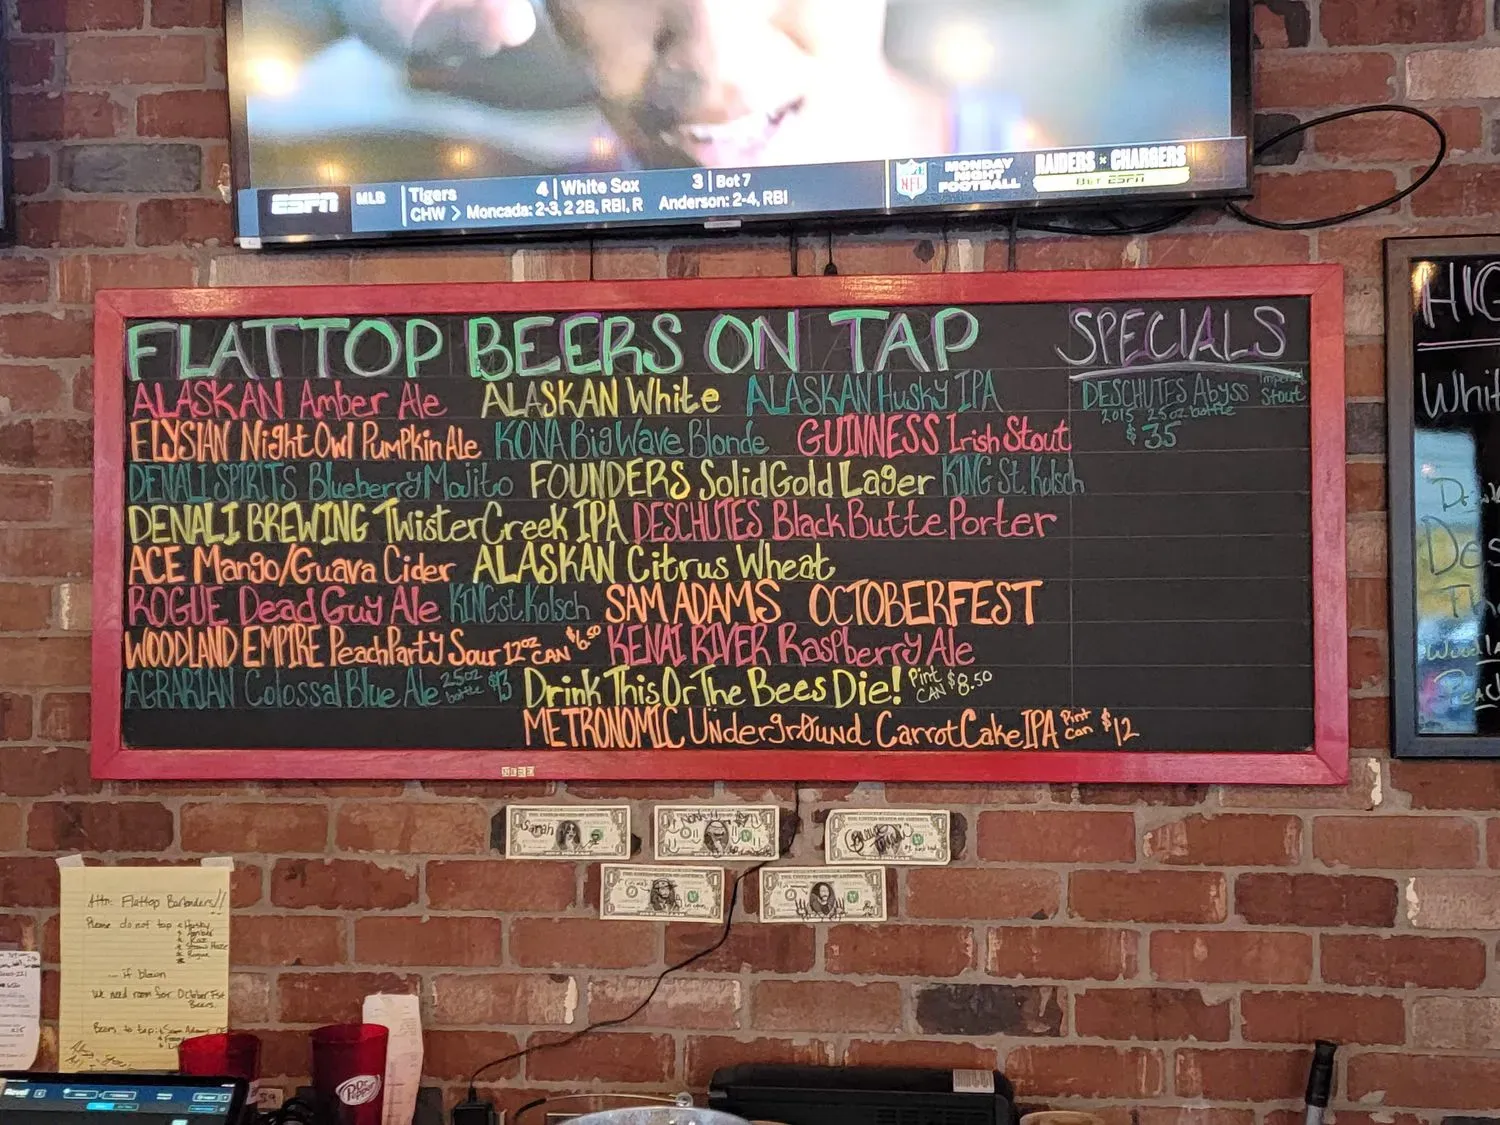 ESPN MLB Tigers 4 White Sox 3 Bot 7
CHW > Moncada: 2-3, 2 2B, RBI, R Anderson: 2-4, RBI
NFL MONDAY NIGHT FOOTBALL RAIDERS CHARGERS
ESPN
FLATTOP BEERS ON TAP
ALASKAN Amber Ale ALASKAN White ALASKAN Husky IPA
ELYSIAN Night Owl Pumpkin Ale KONA Big Wave Blonde GUINNESS Irish Stout
DENALI SPIRITS Blueberry Mojito FOUNDERS Solid Gold Lager KING St. Kolsch
DENALI BREWING Twister Creek IPA DESCHUTES Black Butte Porter
ACE Mango/Guava Cider ALASKAN Citrus Wheat
ROGUE Dead Guy Ale KING St. Kolsch SAM ADAMS OCTOBERFEST
WOODLAND EMPIRE Peach Party Sour 12oz CAN $6.50 KENAI RIVER Raspberry Ale
AGRARIAN Colossal Blue Ale 25oz bottle $13 Drink This Or The Bees Die! Pint CAN $8.50
METRONOMIC Underground Carrot Cake IPA Pint can $12
SPECIALS
DESCHUTES Abyss Imperial Stout
2015 25oz bottle
$35
HIG
Whit
Des
Sarah
Attn: Flattop Bartenders!!
Please do not tap * Husky
* Amber
* Rogue
- if blown
We need room for October Fst
Beers.
Beers to tap: * Sam Adams
Dr Pepper